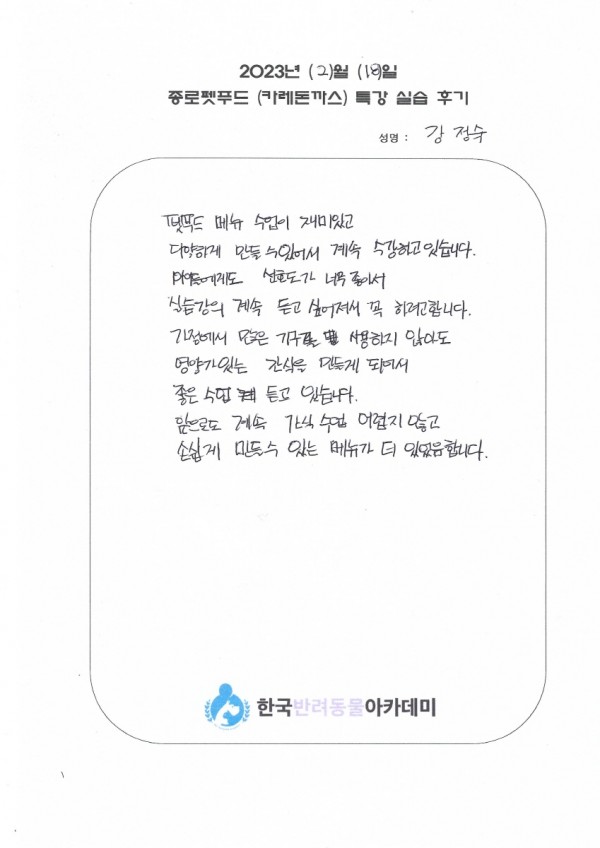 2023년 (2)월 (18)일
종로펫푸드 (카레돈까스) 특강 실습 후기
성명 : 강 정수
펫푸드 메뉴 수업이 재미있고
다양하게 만들 수 있어서 계속 수강하고 있습니다.
아이들에게도 선호도가 너무 좋아서
실습강의 계속 듣고 싶어져서 꼭 하려고합니다.
가정에서 많은 기구를 사용하지 않아도
영양가있는 간식을 만들게 되어서
좋은 수업 듣고 있습니다.
앞으로도 계속 간식 수업 어렵지 않고
손쉽게 만들수 있는 메뉴가 더 있었음합니다.
한국반려동물아카데미